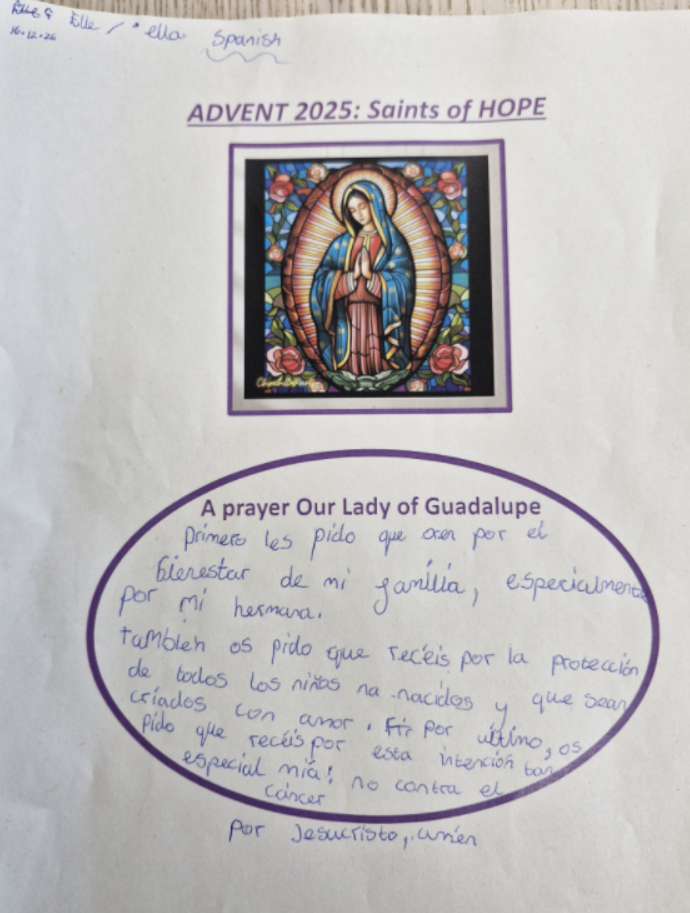 Elle / *ella Spanish
16.12.26
ADVENT 2025: Saints of HOPE
A prayer Our Lady of Guadalupe
Primero les pido que oren por el
bienestar de mi familia, especialmente
por mi hermana.
también os pido que recéis por la protección
de todos los niños na nacidos y que sean
criados con amor. por último, os
pido que recéis por esta intención tan
especial mía! no contra el
cáncer
por Jesucristo, amén